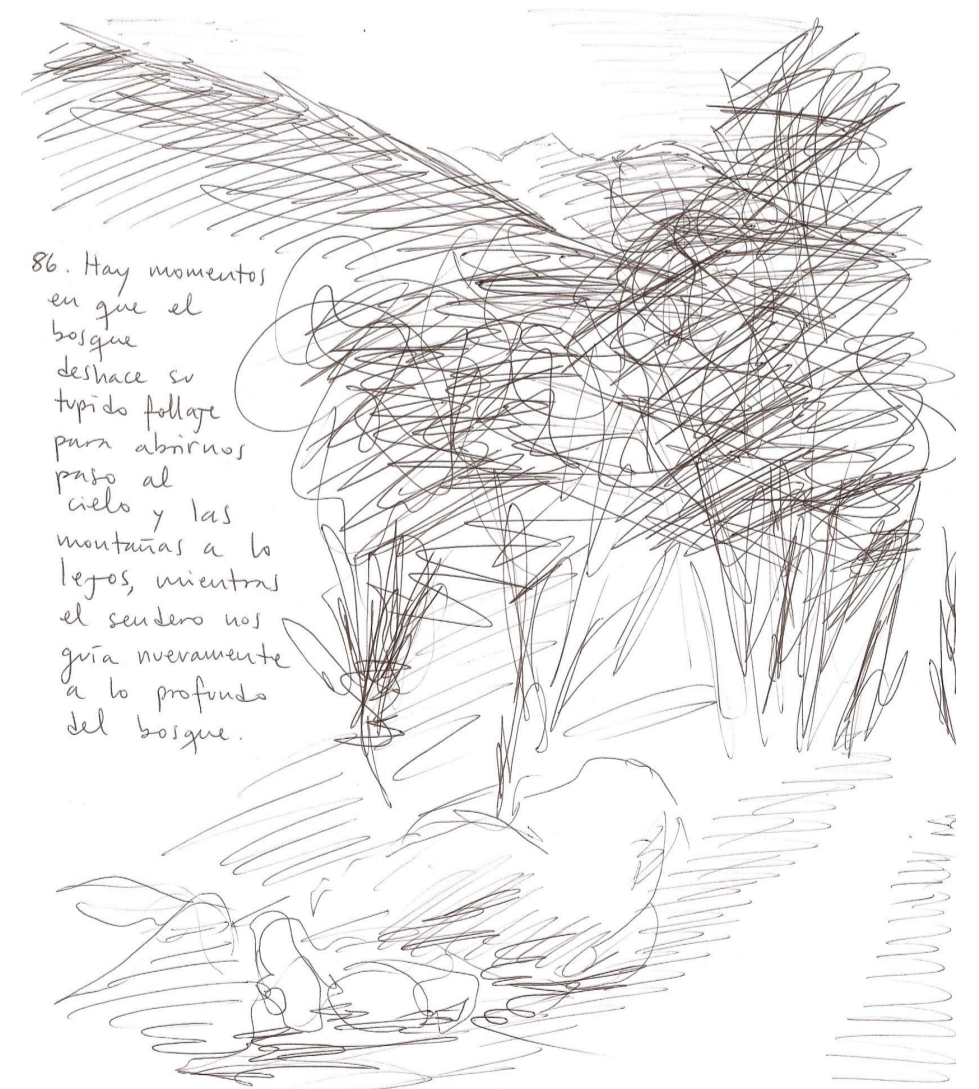 86. Hay momentos
en que el
bosque
deshace su
tupido follaje
para abrirnos
paso al
cielo y las
montañas a lo
lejos, mientras
el sendero nos
guía nuevamente
a lo profundo
del bosque.